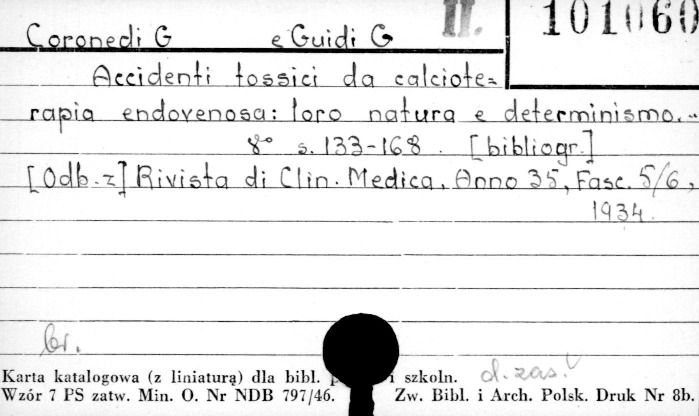 Coronedi G e Guidi G II. 101060
Accidenti tossici da calciote=
rapia endovenosa: loro natura e determinismo.-
8° s. 133-168. [bibliogr.]
[Odb. z] Rivista di Clin. Medica, Anno 35, Fasc. 5/6,
1934.
br.
d. zas.
Karta katalogowa (z liniaturą) dla bibl. i szkoln.
Wzór 7 PS zatw. Min. O. Nr NDB 797/46. Zw. Bibl. i Arch. Polsk. Druk Nr 8b.